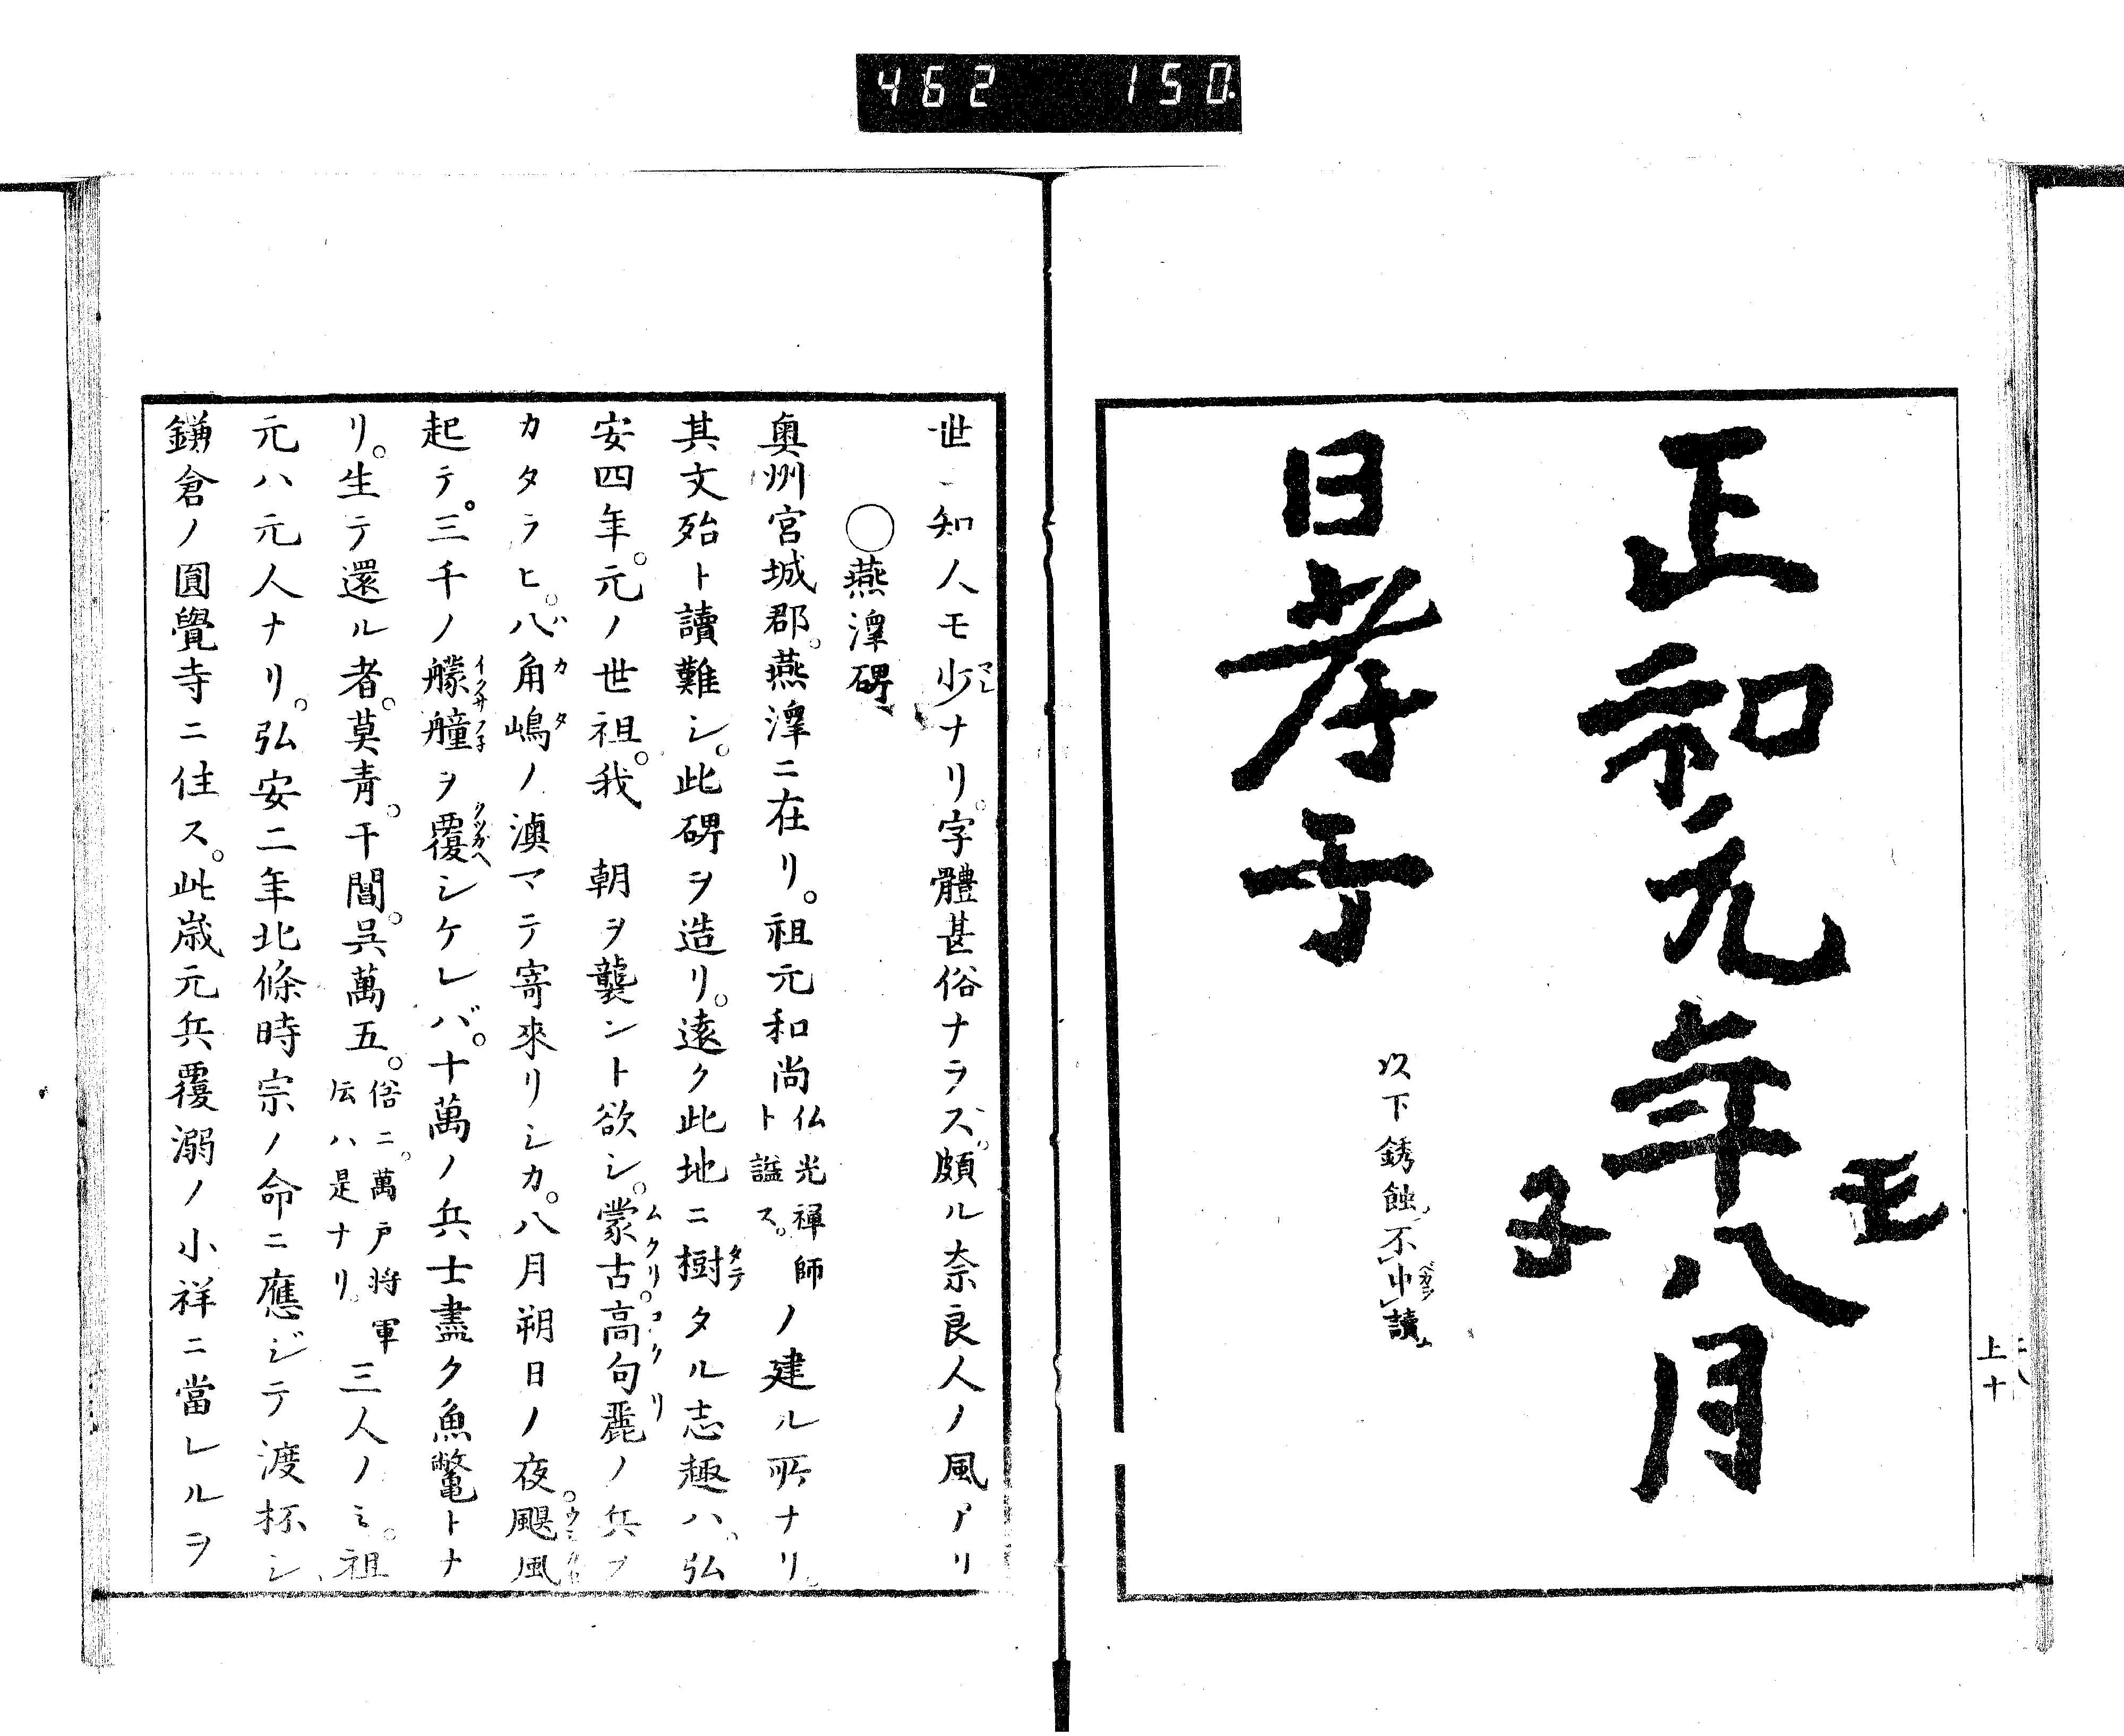 462 150
正和元年八月
壬
子
日孝子
以下銹蝕不中讀
上十
世ニ知人モ少ナリ。字體甚俗ナラズ。頗ル奈良人ノ風アリ
〇燕澤碑
奥州宮城郡。燕澤ニ在リ。祖元和尚仏光禅師ト謚ス。ノ建ル所ナリ。
其文殆ト讀難シ。此碑ヲ造リ。遠ク此地ニ樹タル志趣ハ。弘
安四年。元ノ世祖。我 朝ヲ襲ント欲シ。蒙古。高句麗ノ兵ヲ
カタラヒ。八角嶋ノ濵マテ寄來リシカ。八月朔日ノ夜。颶風
起テ。三千ノ艨艟ヲ覆シケレバ。十萬ノ兵士盡ク魚鼈トナ
リ。生テ還ル者。莫青。干閶。呉萬五。俗ニ。萬戸将軍伝ハ是ナリ。三人ノミ。祖
元ハ元人ナリ。弘安二年北條時宗ノ命ニ應ジテ渡杯シ
鎌倉ノ圓覺寺ニ住ス。此歳元兵覆溺ノ小祥ニ當レルヲ